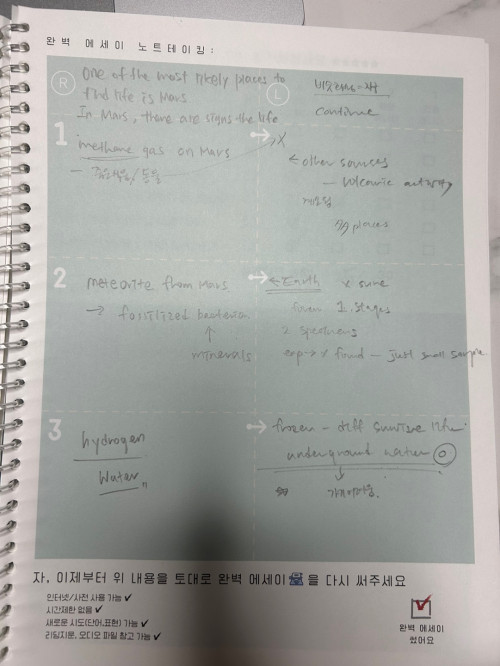 완벽 에세이 노트테이킹:
R One of the most likely places to
find life is Mars
In Mars, there are signs the life
L
continue
1 methane gas on Mars
X
← other sources
— volcanic activity
places
2 meteorite from Mars
→ fossilized bacteria
↑
minerals
← Earth x sure
2 specimens
exp → x found — just small sample
3 hydrogen
water
frozen — diff survive
underground water
자, 이제부터 위 내용을 토대로 완벽 에세이를 다시 써주세요
인터넷/사전 사용 가능 ✓
시간제한 없음 ✓
새로운 시도(단어,표현) 가능 ✓
리딩지문, 오디오 파일 참고 가능 ✓
완벽 에세이
썼어요